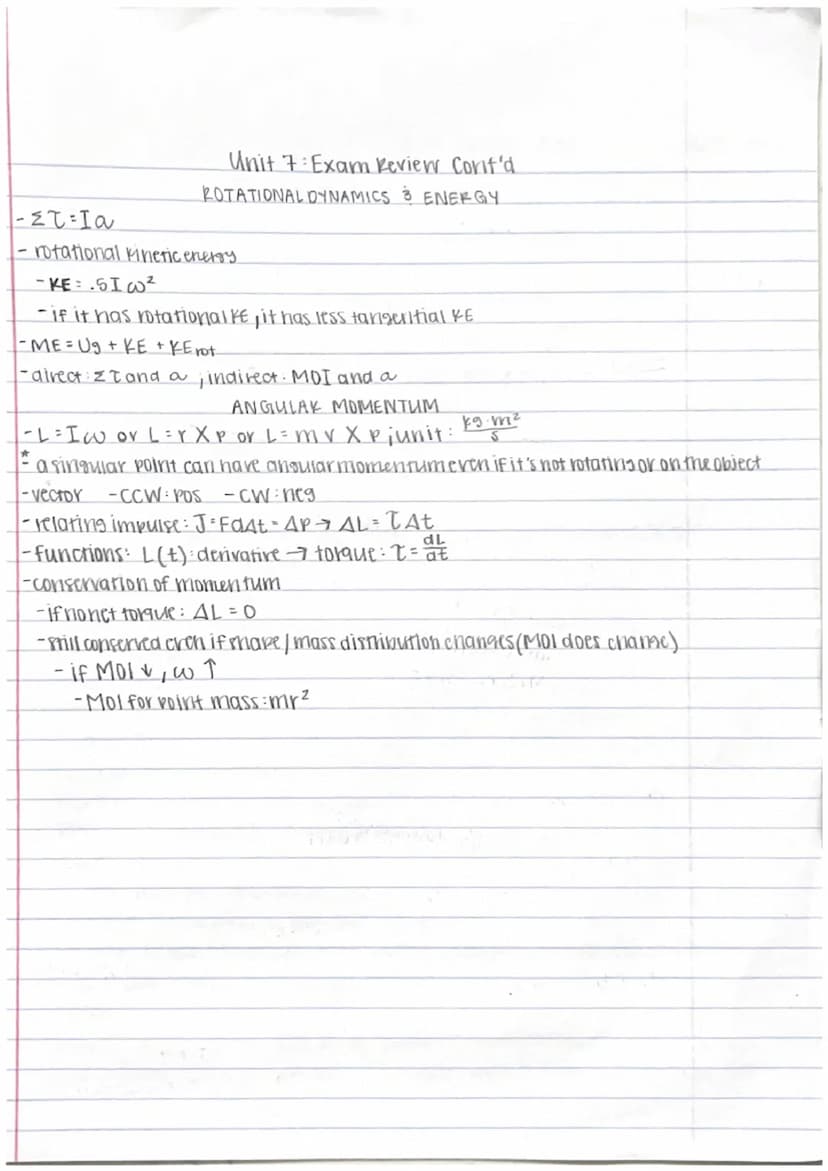 Unit 7: Exam Review Cont'd
ROTATIONAL DYNAMICS & ENERGY
- Στ=Iα
- rotational kinetic energy
- KE = .5Iω²
- if it has rotational KE, it has less tangential KE
- ME = Ug + KE + KErot
- direct: Στ and α ; indirect: MOI and α
ANGULAR MOMENTUM
- L=Iω or L=r X p or L=mv X r; unit: kg·m²/s
* - a singular point can have angular momentum even if it's not rotating or on the object
- vector - CCW: pos - CW: neg
- relating impulse: J=FΔt = ΔP → ΔL = τΔt
- functions: L(t): derivative → torque: τ= dL/dt
- conservation of momentum
- if no net torque: ΔL = 0
- still conserved even if shape/mass distribution changes (MOI does change)
- if MOI ↓, ω ↑
- MOI for point mass: mr²